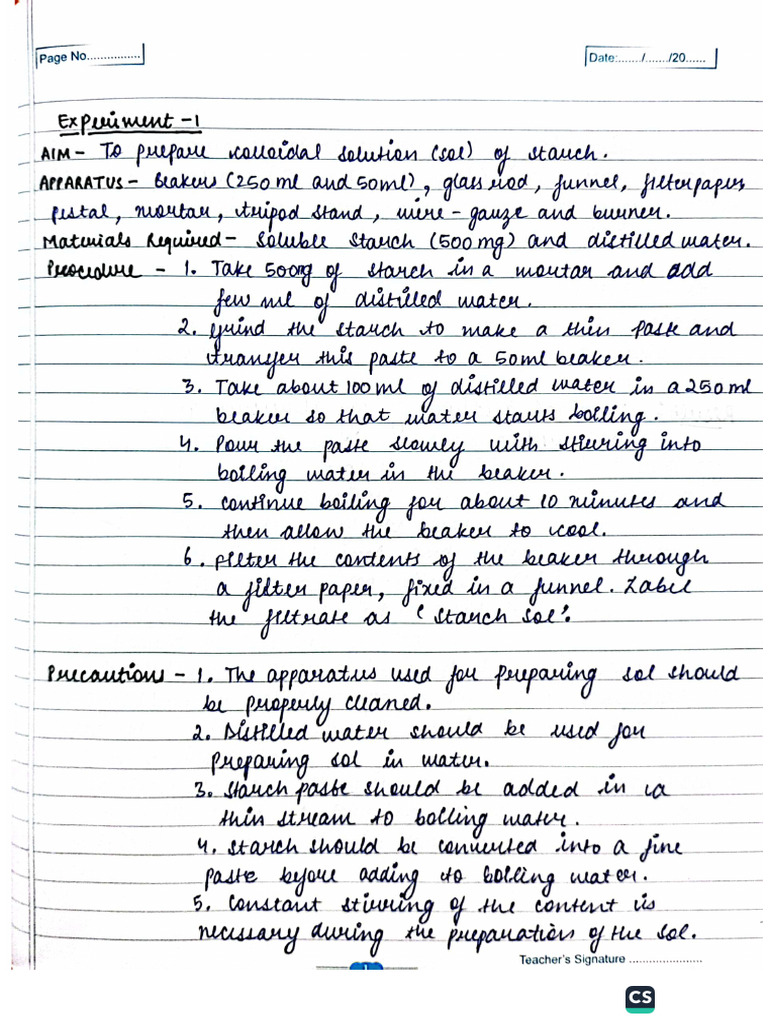 Page No...............
Date:......./......./20......
Experiment -1
AIM - To prepare colloidal solution (sol) of starch.
APPARATUS - Beakers (250 ml and 50ml), glass rod, funnel, filter paper,
pestal, mortar, tripod stand, wire - gauze and burner.
Materials Required - Soluble Starch (500 mg) and distilled water.
Procedure - 1. Take 500mg of starch in a mortar and add
few ml of distilled water.
2. Grind the starch to make a thin paste and
transfer this paste to a 50ml beaker.
3. Take about 100 ml of distilled water in a 250 ml
beaker so that water starts boiling.
4. Pour the paste slowly with stirring into
boiling water in the beaker.
5. Continue boiling for about 10 minutes and
then allow the beaker to cool.
6. Filter the contents of the beaker through
a filter paper, fixed in a funnel. Label
the filtrate as 'Starch Sol'.
Precautions - 1. The apparatus used for preparing sol should
be properly cleaned.
2. Distilled water should be used for
preparing sol in water.
3. Starch paste should be added in a
thin stream to boiling water.
4. Starch should be converted into a fine
paste before adding to boiling water.
5. Constant stirring of the content is
necessary during the preparation of the sol.
1
Teacher's Signature ......................
CS